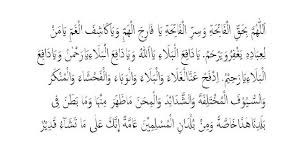 اَللّٰهُمَّ بِحَقِّ الْفَاتِحَةِ وَسِرِّ الْفَاتِحَةِ يَا فَارِجَ الْهَمِّ وَيَا كَاشِفَ الْغَمِّ يَامَنْ
لِعِبَادِهِ يَغْفِرُ وَيَرْحَمُ. يَادَافِعَ الْبَلَاءِ يَااَللّٰهُ وَيَادَافِعَ الْبَلَاءِ يَارَحْمٰنُ وَيَادَافِعَ
الْبَلَاءِ يَارَحِيْمُ. اِدْفَعْ عَنَّا الْغَلَاءَ وَالْبَلَاءَ وَالْوَبَاءَ وَالْفَحْشَاءَ وَالْمُنْكَرَ
وَالسُّيُوْفَ الْمُخْتَلِفَةَ وَالشَّدَائِدَ وَالْمِحَنَ مَاظَهَرَ مِنْهَا وَمَا بَطَنَ فِى
بَلَدِنَا هٰذَا خَاصَّةً وَمِنْ بُلْدَانِ الْمُسْلِمِيْنَ عَامَّةً إِنَّكَ عَلٰى مَا تَشَآءُ قَدِيْرٌ